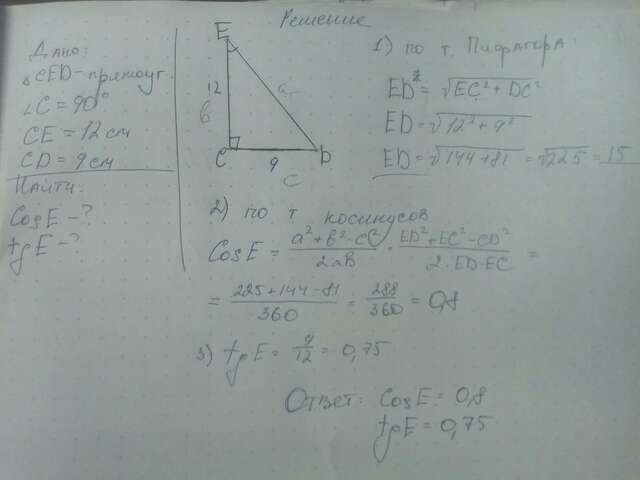 Решение
Дано:
△CED - прямоуг.
∠C = 90°
CE = 12 см
CD = 9 см
Найти:
CosE - ?
tgE - ?
E
12
в
a
C
9
D
c
1) по т. Пифагора:
ED² = √EC² + DC²
ED = √12² + 9²
ED = √144 + 81 = √225 = 15
2) по т косинусов
CosE = a² + в² - c² / 2aв = ED² + EC² - CD² / 2·ED·EC =
= 225 + 144 - 81 / 360 = 288 / 360 = 0,8
3) tgE = 9/12 = 0,75
Ответ: CosE = 0,8
tgE = 0,75